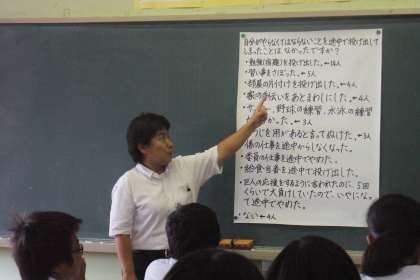 自分がやらなくてはならないことを途中で投げ出して
しまったことは、なかったですか？
・勉強(宿題)を投げ出した。←14人
・習い事をさぼった。←5人
・部屋の片付けを投げ出した。←4人
・家の手伝いをあとまわしにした。←4人
野球の練習、水泳の練習
かった。←3人
用があると言って抜けた。←3人
係の仕事を途中からしなくなった。
・委員の仕事を途中でやめた。
・給食当番を途中で投げ出した。
・巨人の応援をするように言われたのに、5回
くらいで大負けしていたので、いやになっ
て途中でやめた。
・ない ←4人